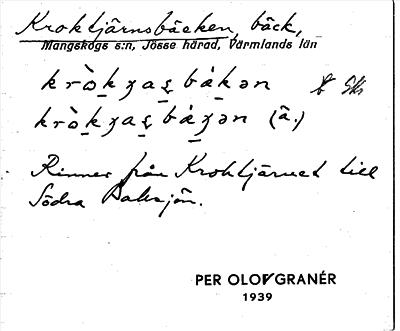 Kroktjärnsbäcken, bäck,
Mangskogs s:n, Jösse härad, Värmlands län
krò̱kɟas̱ bákən
krò̱kɟas̱ báɟən (ä.)
Rinner från Kroktjärnet till
Södra
PER OLOV GRANÉR
1939